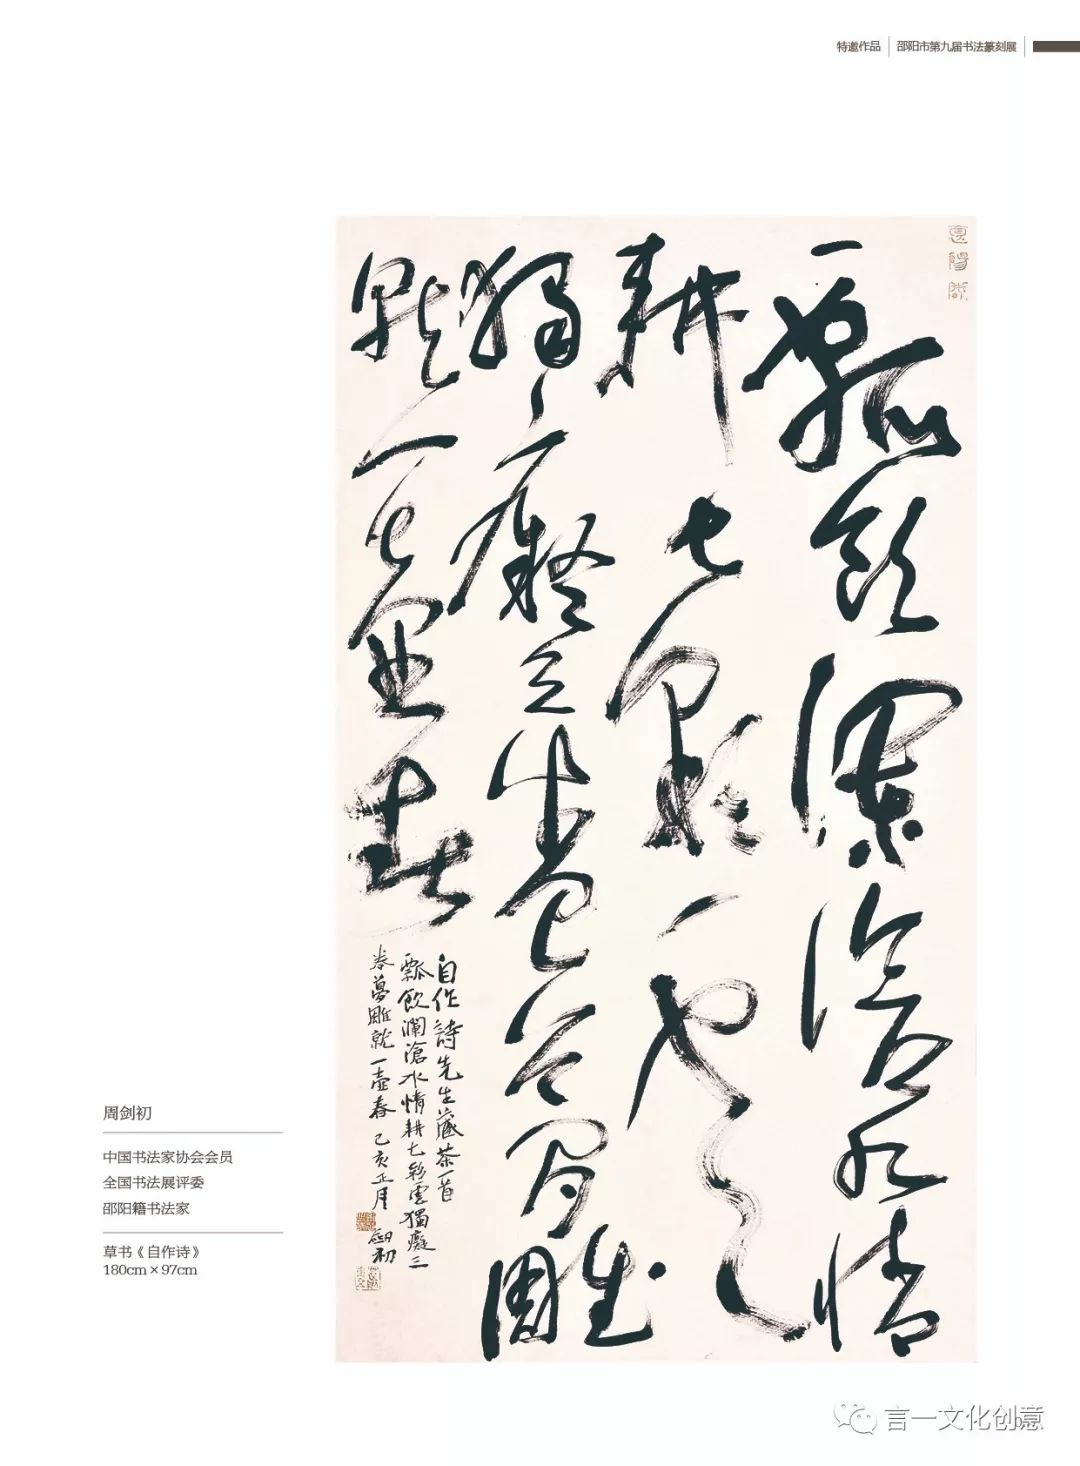 特邀作品 邵阳市第九届书法篆刻展
瓢飲瀾滄水情
耕七彩雲
獨癡三卷夢雕
就一壺春
自作詩先生藏茶一首
瓢飲瀾滄水情耕七彩雲獨癡三
卷夢雕就一壺春 己亥正月 劍初
周剑初
中国书法家协会会员
全国书法展评委
邵阳籍书法家
草书《自作诗》
180cm×97cm
言一文化创意